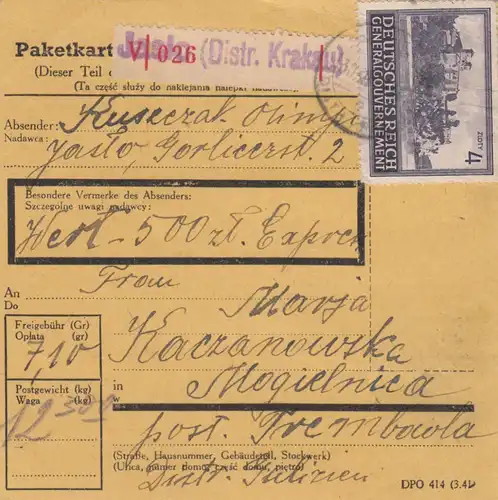 Paketkart
Jasło (Distr. Krakau)
V 026
(Dieser Teil
(Ta część służy do naklejania nalepki
Absender: Kuszczak Olimp
Nadawca:
Jasło, Gorlicerst. 2
Besondere Vermerke des Absenders:
Szczególne uwagi nadawcy:
Wert - 500 zł.
DEUTSCHES REICH
GENERALGOUVERNEMENT
4 ZŁOTY
An
Do
Marja
Freigebühr (Gr)
Opłata (gr)
7,10
Kaczanowska
Postgewicht (kg)
Waga (kg)
in
w
Mogielnica
post. Trembowla
(Straße, Hausnummer, Gebäudeteil, Stockwerk)
(Ulica, numer domu, część domu, piętro)
Distr. Galizien
DPO 414 (3.41)